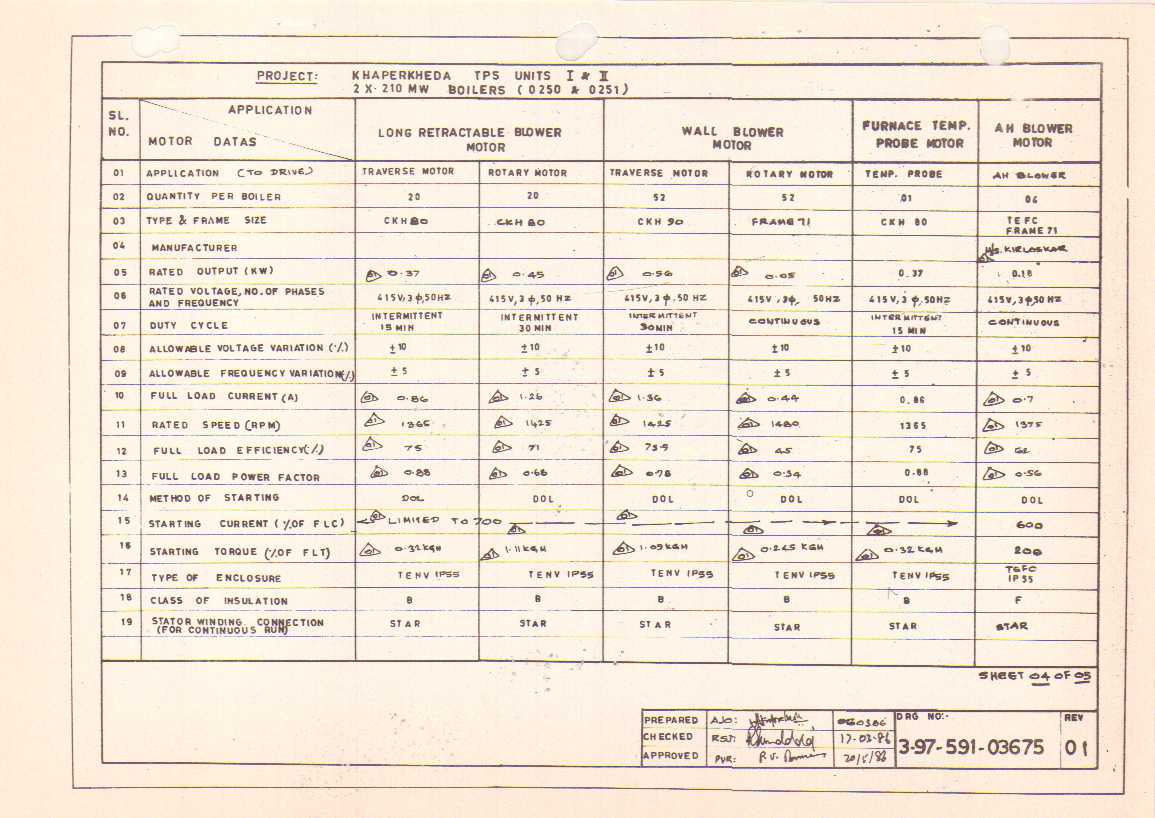 PROJECT: KHAPERKHEDA TPS UNITS I & II
2 X 210 MW BOILERS (0250 & 0251)
SL. NO. APPLICATION
MOTOR DATAS
LONG RETRACTABLE BLOWER MOTOR
WALL BLOWER MOTOR
FURNACE TEMP. PROBE MOTOR
AH BLOWER MOTOR
01 APPLICATION (TO DRIVE) TRAVERSE MOTOR ROTARY MOTOR TRAVERSE MOTOR ROTARY MOTOR TEMP. PROBE AH BLOWER
02 QUANTITY PER BOILER 20 20 52 52 01 06
03 TYPE & FRAME SIZE CKH 80 CKH 80 CKH 90 FRAME 71 CKH 80 TEFC FRAME 71
04 MANUFACTURER M/S. KIRLOSKAR
05 RATED OUTPUT (KW) 01 0.37 01 0.45 01 0.56 01 0.05 0.37 0.18
06 RATED VOLTAGE, NO. OF PHASES AND FREQUENCY 415V, 3 φ, 50HZ 415V, 3 φ, 50 HZ 415V, 3 φ, 50 HZ 415V, 3φ, 50HZ 415V, 3 φ, 50HZ 415V, 3φ 50 HZ
07 DUTY CYCLE INTERMITTENT 15 MIN INTERMITTENT 30 MIN INTERMITTENT 30 MIN CONTINUOUS INTERMITTENT 15 MIN CONTINUOUS
08 ALLOWABLE VOLTAGE VARIATION (%) ±10 ±10 ±10 ±10 ±10 ±10
09 ALLOWABLE FREQUENCY VARIATION (%) ± 5 ± 5 ± 5 ± 5 ± 5 ± 5
10 FULL LOAD CURRENT (A) 01 0.86 01 1.26 01 1.36 01 0.44 0.86 01 0.7
11 RATED SPEED (RPM) 01 1365 01 1425 01 1425 01 1480 1365 01 1375
12 FULL LOAD EFFICIENCY (%) 01 75 01 71 01 73.5 01 45 75 01 62
13 FULL LOAD POWER FACTOR 01 0.88 01 0.68 01 0.78 01 0.34 0.88 01 0.56
14 METHOD OF STARTING DOL DOL DOL DOL DOL DOL
15 STARTING CURRENT (% OF FLC) 01 LIMITED TO 700 01 01 01 01 600
16 STARTING TORQUE (% OF FLT) 01 0.32 KGM 01 1.11 KGM 01 1.09 KGM 01 0.245 KGM 01 0.32 KGM 200
17 TYPE OF ENCLOSURE TENV IP55 TENV IP55 TENV IP55 TENV IP55 TENV IP55 TEFC IP 55
18 CLASS OF INSULATION B B B B B F
19 STATOR WINDING CONNECTION (FOR CONTINUOUS RUN) STAR STAR STAR STAR STAR STAR
SHEET 04 OF 05
PREPARED AJO:
CHECKED RSJ: 17-03-86
APPROVED PVR: 20/5/86
DRG NO:- 3-97-591-03675
REV 01